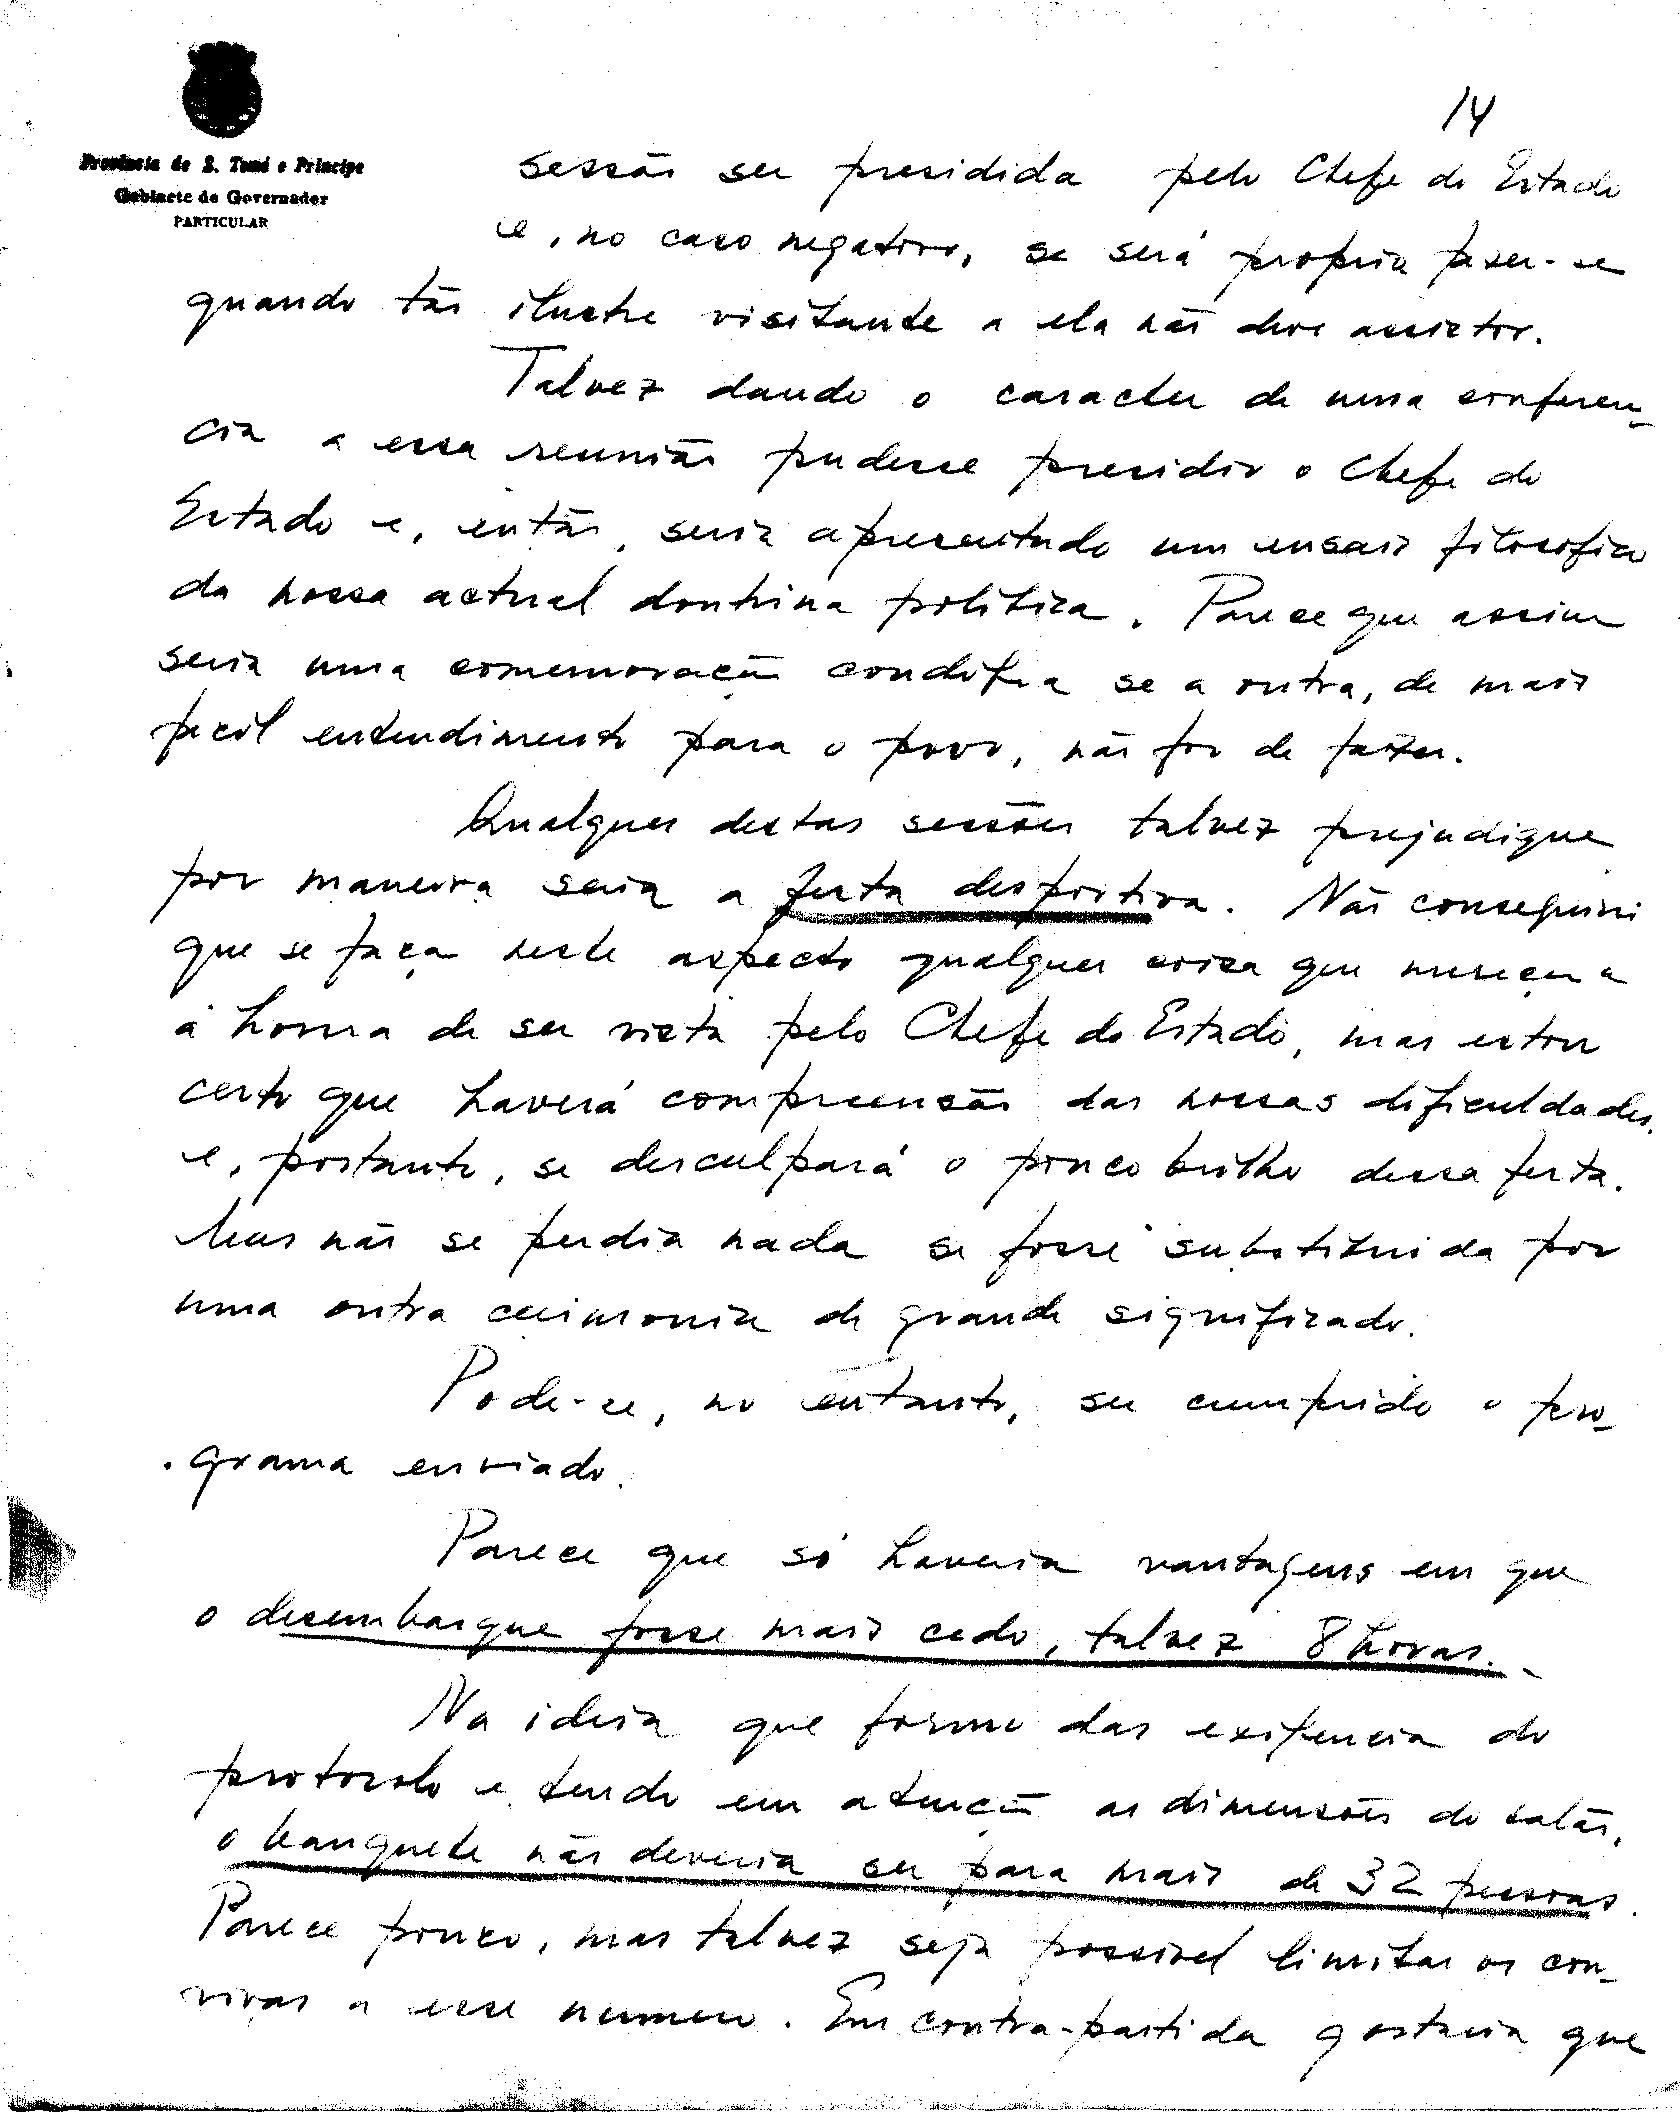 14
Provincia de S. Tomé e Príncipe
Gabinete do Governador
PARTICULAR
sessão ser presidida pelo Chefe do Estado
e, no caso negativo, se será propria fazer-se
quando tão ilustre visitante a ela não deve assistir.
Talvez dando o caracter de uma conferen-
cia a essa reunião pudesse presidir o Chefe do
Estado e, então, seria apresentado um ensaio filosofico
da nossa actual doutrina politica. Parece que assim
seria uma comemoração condigna se a outra, de mais
facil entendimento para o povo, não for de fazer.
Qualquer destas sessões talvez prejudique
por maneira seria a festa desportiva. Não consegui
que se faça neste aspecto qualquer coisa que mereça
á honra de ser vista pelo Chefe do Estado, mas estou
certo que haverá compreensão das nossas dificuldades
e, portanto, se desculpará o pouco brilho dessa festa.
Mas não se perdia nada se fosse substituida por
uma outra cerimonia de grande significado.
Pode-se, no entanto, ser cumprido o pro-
grama enviado.
Parece que só haveria vantagens em que
o desembarque fosse mais cedo, talvez 8 horas.
Na ideia que formo das exigencia do
protocolo e tendo em atenção as dimensões do salão,
o banquete não deveria ser para mais de 32 pessoas.
Parece pouco, mas talvez seja possivel limitar os con-
vivas a esse numero. Em contra-partida gostaria que